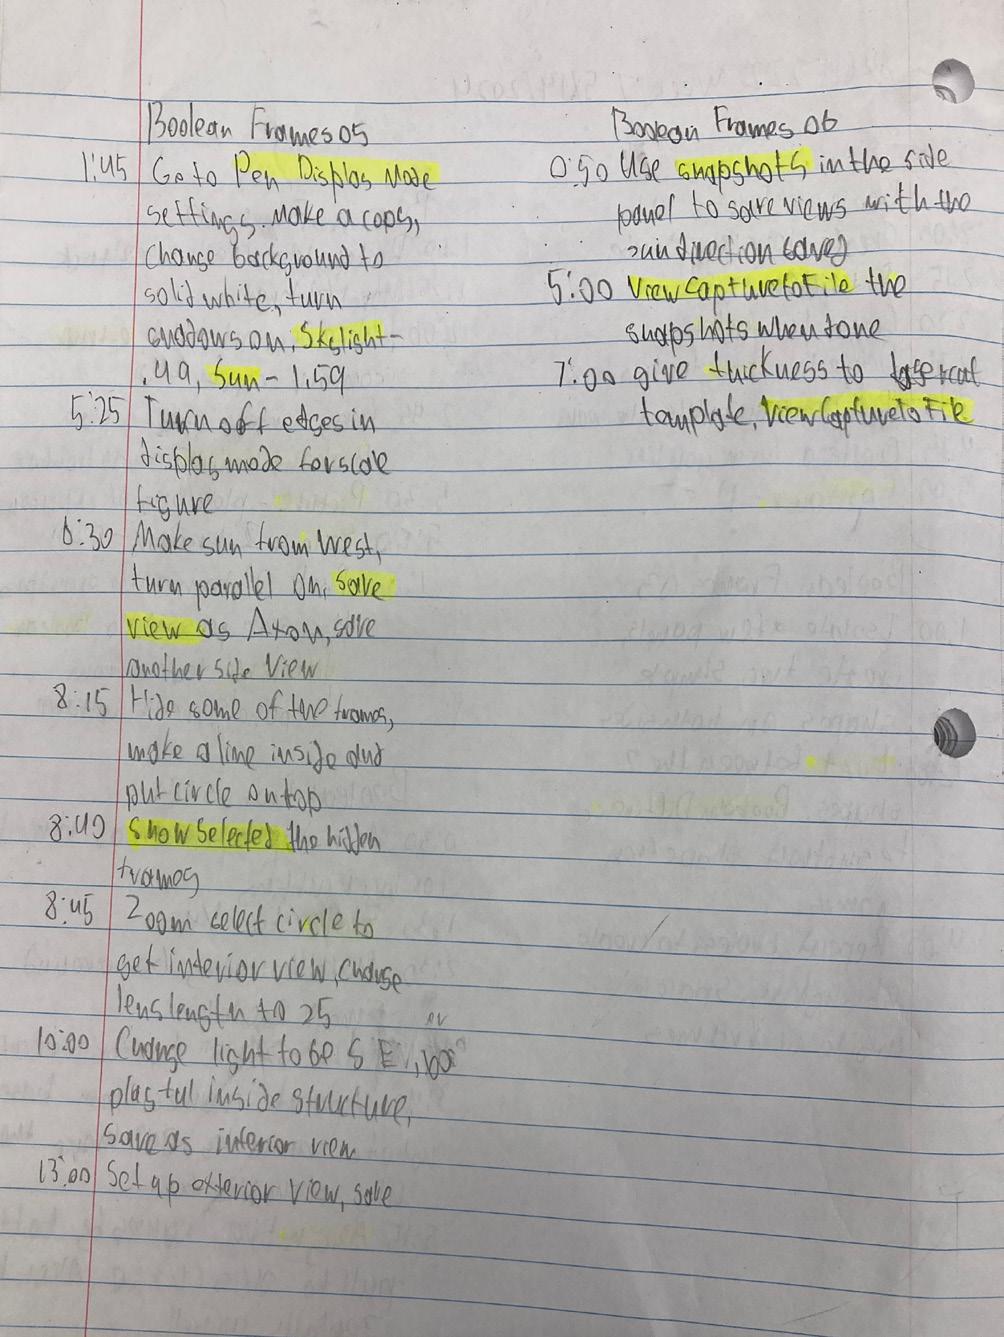 Boolean Frames 05
1:45 Go to Pen Display Mode
settings. Make a copy,
change background to
solid white, turn
shadows on, Skylight-
.49, Sun - 1.59
5:25 Turn off edges in
display mode for scale
figure
6:30 Make sun from West,
turn parallel on, save
view as Axon, save
another side view
8:15 Hide some of the frames,
make a line inside and
put circle on top
8:40 Show Selected the hidden
frames
8:45 Zoom select circle to
get interior view, change
lens length to 25
or
10:00 Change light to be S E,
playful inside structure,
save as interior view
13:00 Set up exterior view, save
Boolean Frames 06
0:50 Use snapshots in the side
panel to save views with the
sun direction saved
5:00 ViewCapturetoFile the
snapshots when done
7:00 give thickness to lasercut
template, ViewCapturetoFile